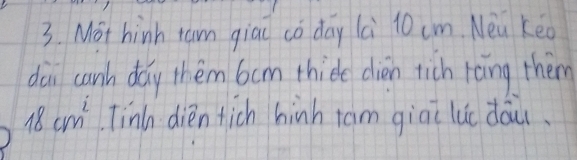 3. Một hình tam giác có đáy là 10 cm. Nếu kéo
dài cạnh đáy thêm 6cm thì dc diện tích tăng thêm
18 cm². Tính diện tích hình tam giác lúc đầu.